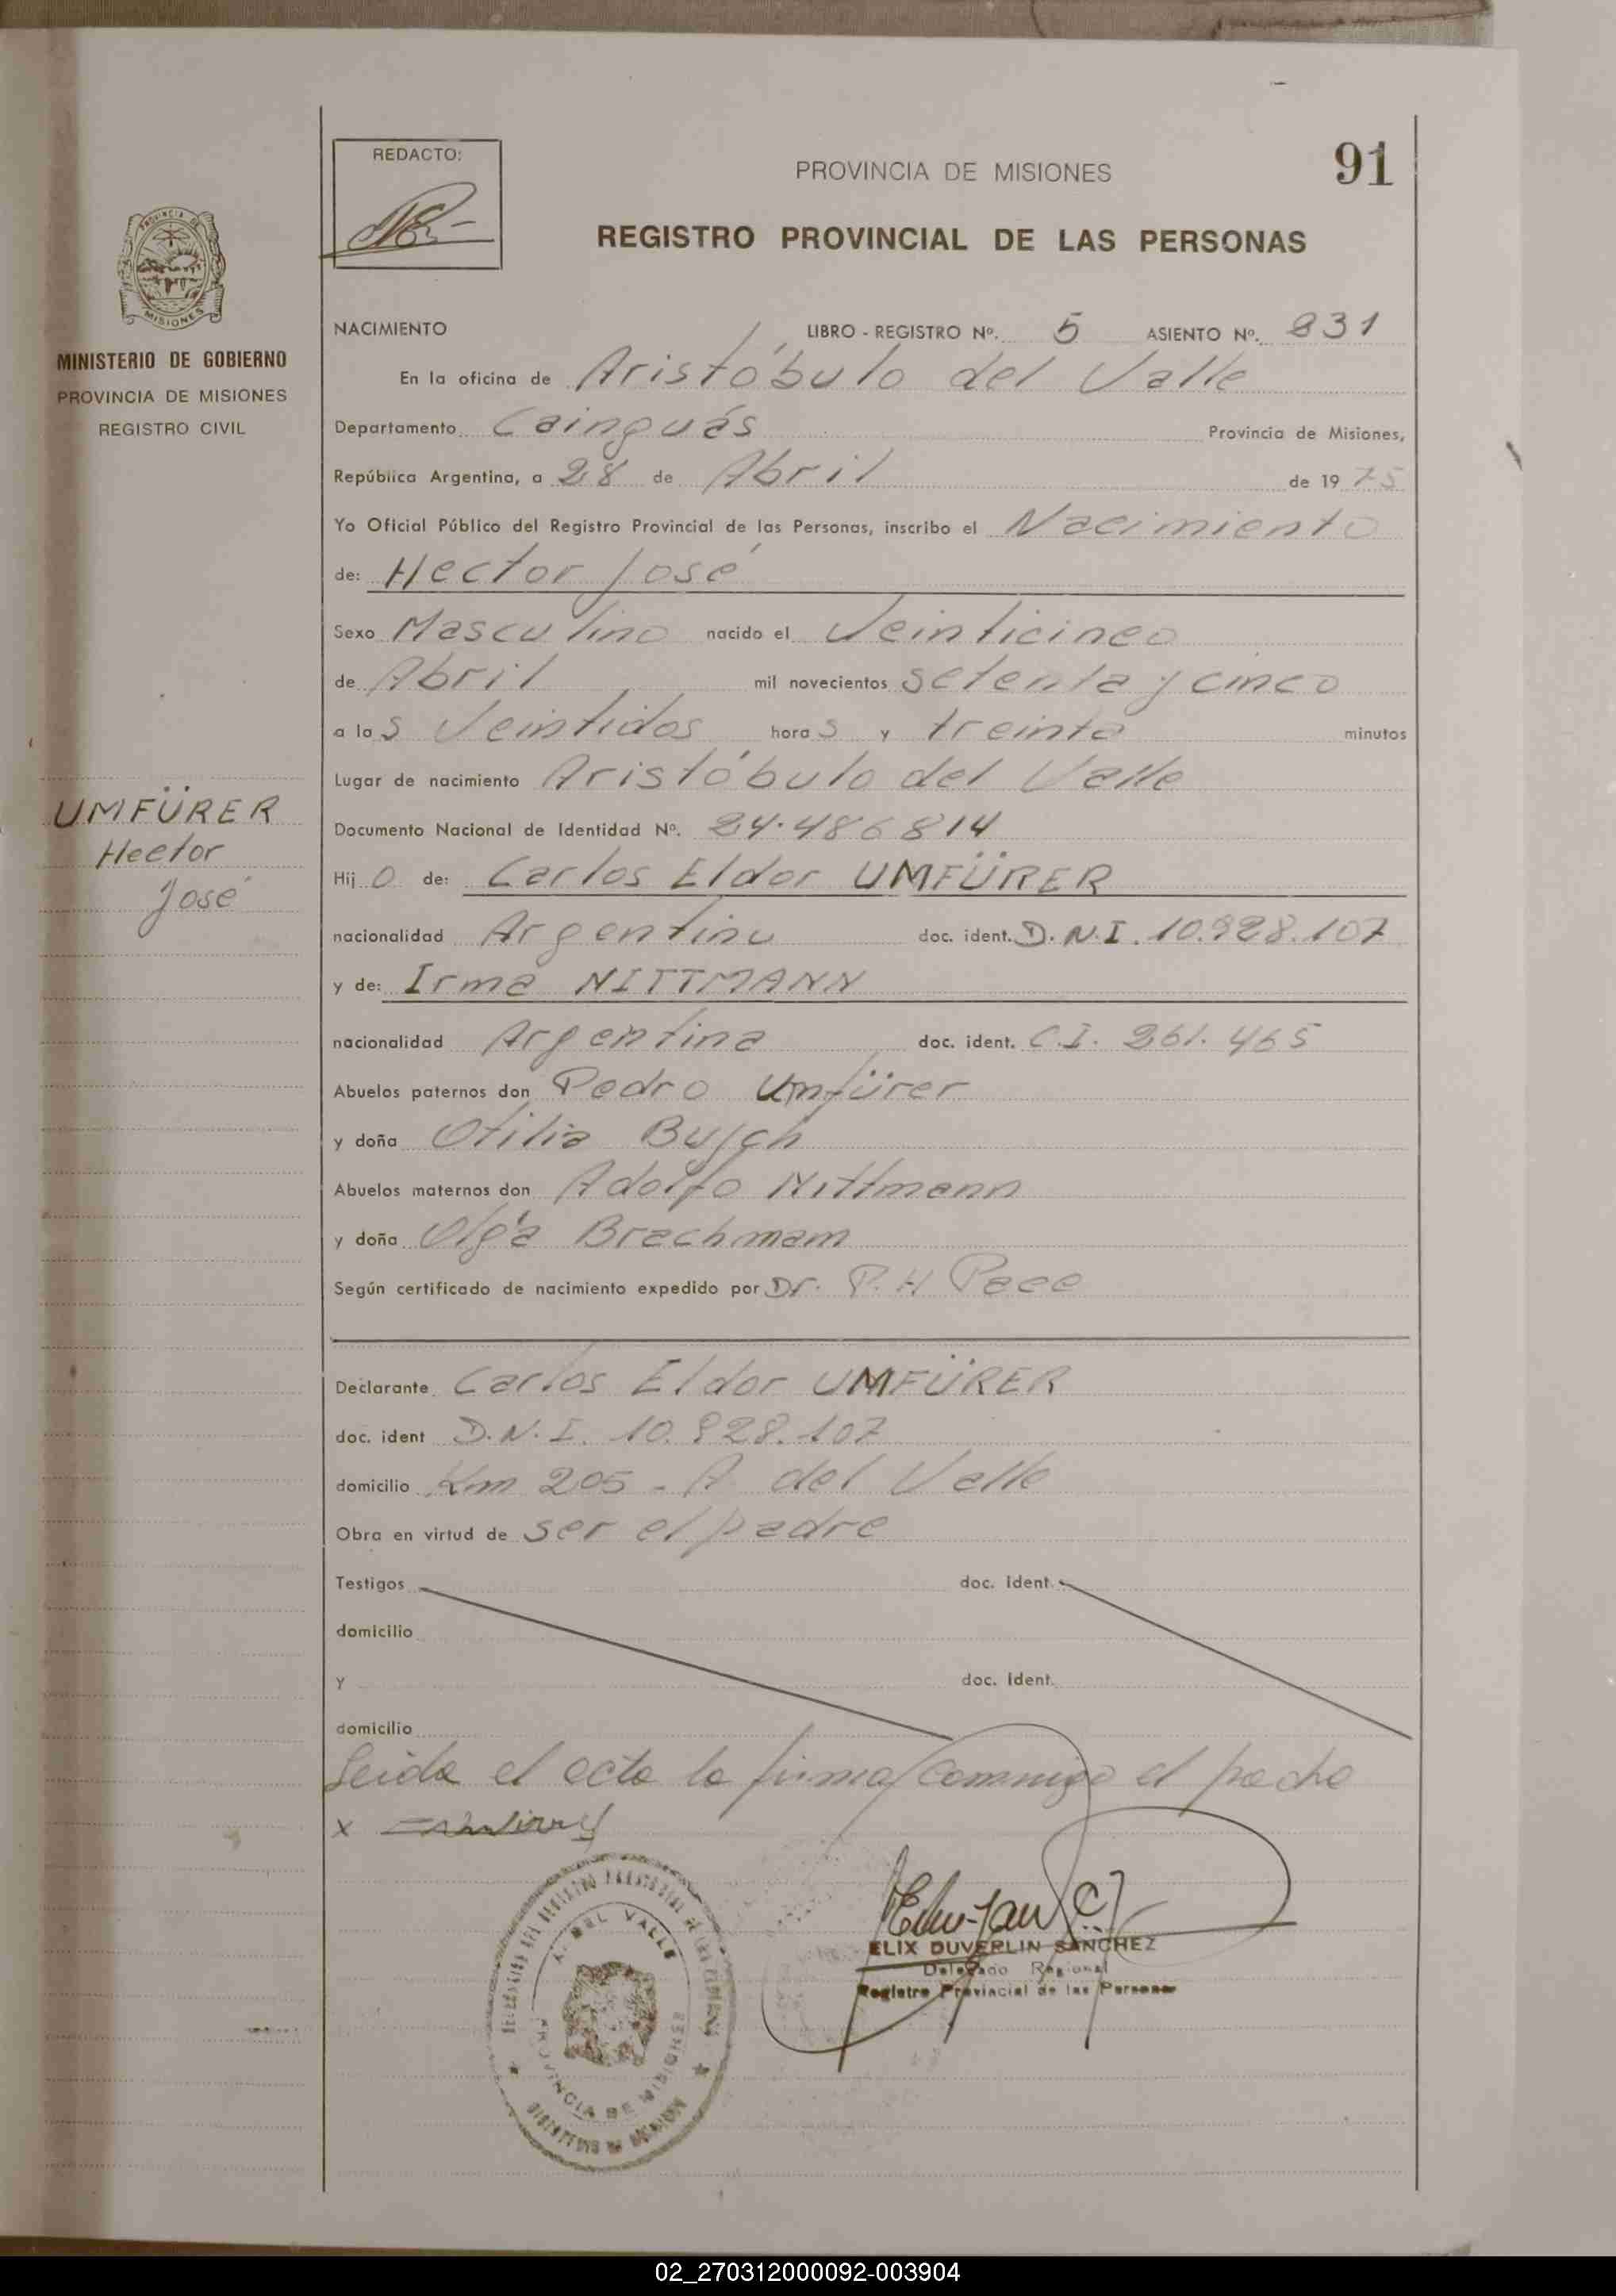 REDACTO:
PROVINCIA DE MISIONES
91
REGISTRO PROVINCIAL DE LAS PERSONAS
PROVINCIA DE
MISIONES
MINISTERIO DE GOBIERNO
PROVINCIA DE MISIONES
REGISTRO CIVIL
NACIMIENTO LIBRO - REGISTRO Nº. 5 ASIENTO Nº. 831
En la oficina de Aristóbulo del Valle
Departamento Cainguás Provincia de Misiones,
República Argentina, a 28 de Abril de 1975
Yo Oficial Público del Registro Provincial de las Personas, inscribo el Nacimiento
de: Hector José
Sexo Masculino nacido el Veinticinco
de Abril mil novecientos setenta y cinco
a las Veintidos horas y treinta minutos
Lugar de nacimiento Aristóbulo del Valle
UMFÜRER
Hector
José
Documento Nacional de Identidad Nº. 24.486814
Hijo de: Carlos Eldor UMFÜRER
nacionalidad Argentina doc. ident. D.N.I. 10.928.107
y de: Irma NITTMANN
nacionalidad Argentina doc. ident. C.I. 261.465
Abuelos paternos don Pedro Umfürer
y doña Otilia Busch
Abuelos maternos don Adolfo Nittmann
y doña Olga Brachmam
Según certificado de nacimiento expedido por Dr. P. H Pace
Declarante Carlos Eldor UMFÜRER
doc. ident D.N.I. 10.928.107
domicilio Km 205 - A. del Valle
Obra en virtud de ser el padre
Testigos doc. ident.
domicilio
y doc. ident.
domicilio
Leida el acta la firma conmigo el padre
x
A. DEL VALLE
PROVINCIA DE MISIONES
ELIX DUVERLIN SANCHEZ
Delegado Regional
Registro Provincial de las Personas
02_270312000092-003904